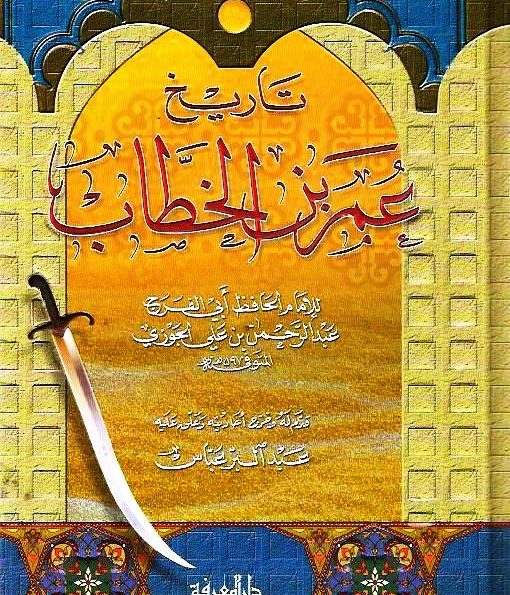 تاريخ
عمر بن الخطاب
للإمام الحافظ أبي الفرج
عبد الرحمن بن علي الجوزي
المتوفى ٥٩٧ هـ
قدم له وخرج أحاديثه وعلق عليه
عبد البر عباس
دار المعرفة